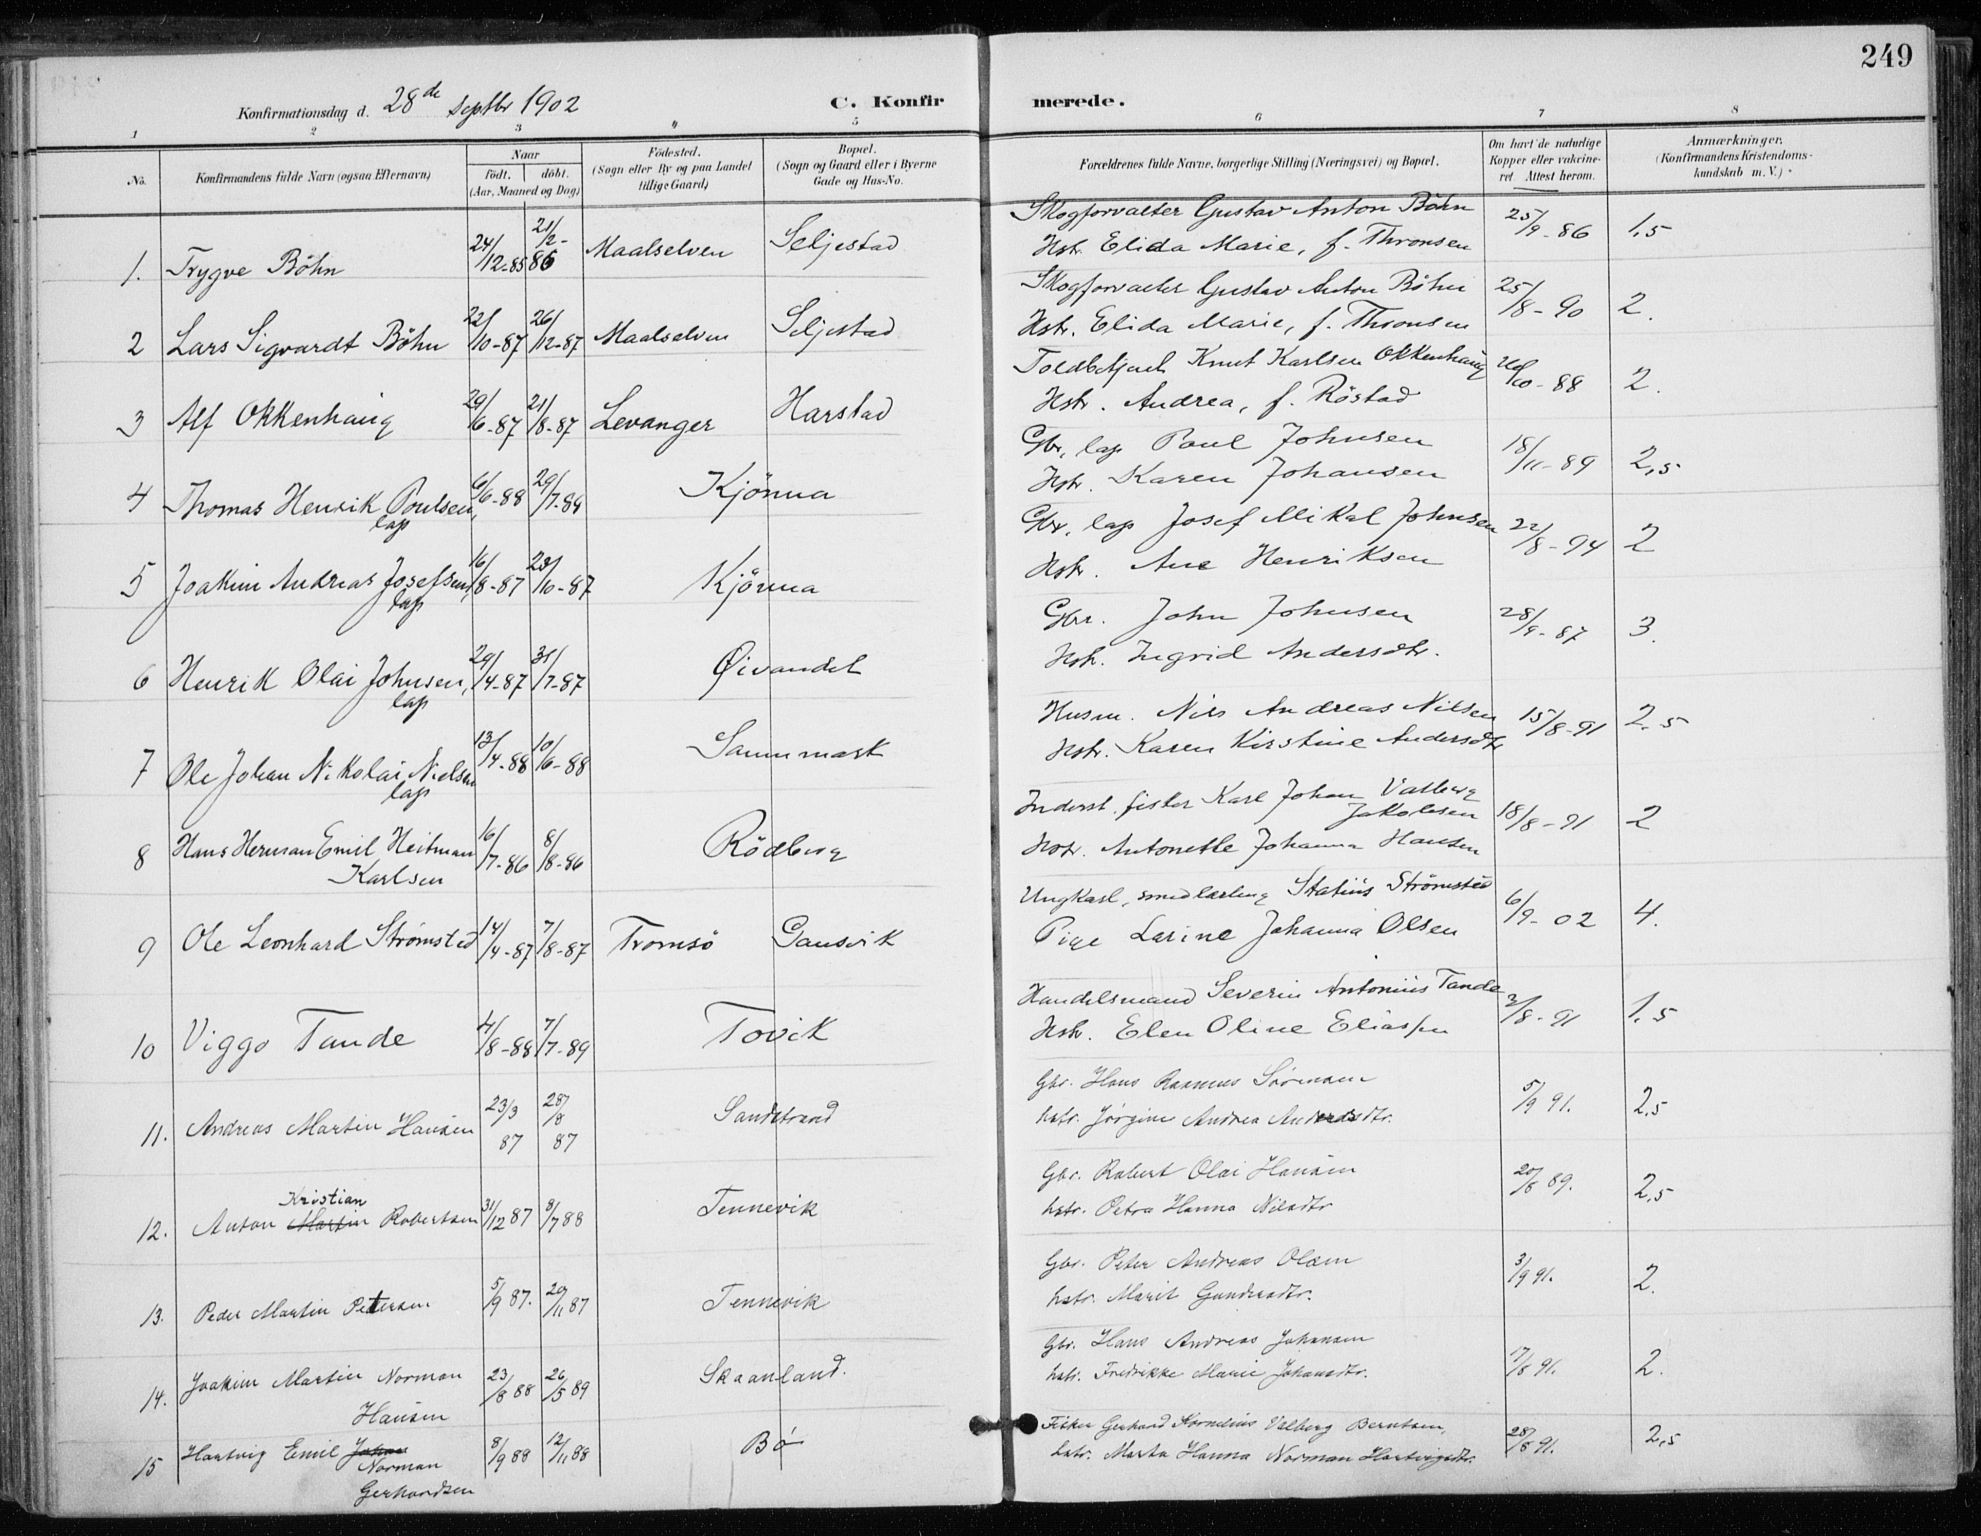 249
Konfirmationsdag d. 28de Septbr 1902
C. Konfirmerede.
1 2 3 4 5 6 7 8
No.
Konfirmandens fulde Navn (ogsaa Efternavn)
Naar
födt. döbt.
(Aar, Maaned og Dag)
Födested.
(Sogn eller By og paa Landet
tillige Gaard)
Bopæl.
(Sogn og Gaard eller i Byerne
Gade og Hus-No.
Forældrenes fulde Navne, borgerlige Stilling (Næringsvei) og Bopæl.
Om havt de naturlige
Kopper eller vakcine-
ret Attest herom.
Anmærkninger,
(Konfirmandens Kristendoms-
kundskab m. V.)
1. Trygve Böhn 24/12-85 21/2-86 Maalselven Seljestad Skogforvalter Gustav Anton Böhn 25/9-86 1,5
Hstr. Elida Marie, f. Thronsen
2 Lars Sigvardt Böhn 22/10-87 26/12-87 Maalselven Seljestad Skogforvalter Gustav Anton Böhn 25/8-90 2.
Hstr. Elida Marie, f. Thronsen
3 Alf Okkenhaug 29/6-87 21/8-87 Levanger Harstad Toldbetjent Knut Karlsen Okkenhaug /10-88 2.
Hstr. Andrea, f. Röstad
4 Thomas Henrik Poulsen, 6/6-88 29/7-89 Kjönna Gbr, lap Poul Johnsen 18/11-89 2,5
lap
Hstr. Karen Johansen
5 Joakim Andreas Josefsen, 16/8-87 23/10-87 Kjönna Gbr, lap Josef Mikal Johnsen 22/8-94 2
lap
Hstr. Ane Henriksen
6 Henrik Olai Johnsen, 29/4-87 31/7-87 Øivandet Gbr. John Johnsen 28/9-87 3.
lap
Hstr. Ingrid Andersdtr.
7 Ole Johan Nikolai Nielsen 13/4-88 10/6-88 Sammark Husm. Nils Andreas Nilsen 15/8-91 2.5
lap
Hstr. Karen Kirstine Andersdtr
8 Hans Herman Emil Heitman 16/7-86 8/8-86 Rödberg Inderst. fisker Karl Johan Valberg 18/8-91 2
Karlsen
Jakobsen
Hstr. Antonette Johanna Hansen
9 Ole Leonhard Strømsted 14/4-87 7/8-87 Tromsö Gansvik Ungkarl, smedlærling Statius Strömsted 6/9-02 4.
Pige Larine Johanna Olsen
10 Viggo Tande 4/8-88 7/7-89 Tovik Handelsmand Severin Antonius Tande 2/8-91 1.5
Hstr. Elen Oline Eliassen
11. Andreas Martin Hansen 23/3 87 28/8 87 Sandstrand Gbr. Hans Rasmus Sörensen 5/9 91. 2,5
hstr. Jörgine Andrea Andersdtr.
Kristian
12. Anton Martin Robertsen 31/12 87 8/7 88 Tennevik Gbr. Robert Olai Hansen 20/8 89. 2,5
hstr. Petra Hanna Nilsdtr
13. Peder Martin Petersen 5/9 87. 20/11 87 Tennevik Gbr. Peter Andreas Olsen 3/9 91. 2.
hstr. Marit Gundersdtr.
14. Joakim Martin Norman 23/8 88 26/5 89 Skaanland. Gbr. Hans Andreas Johansen 17/8 91. 2.
Hansen
hstr. Fredrikke Marie Johansdtr.
15 Hartvig Emil Johan 8/9 88 12/11 88 Bö Fisker Gerhard Kornelius Valberg Berntsen, 28/8 91. 2,5
Norman
Gerhardsen
hstr. Marta Hanna Norman Hartvigsdtr.